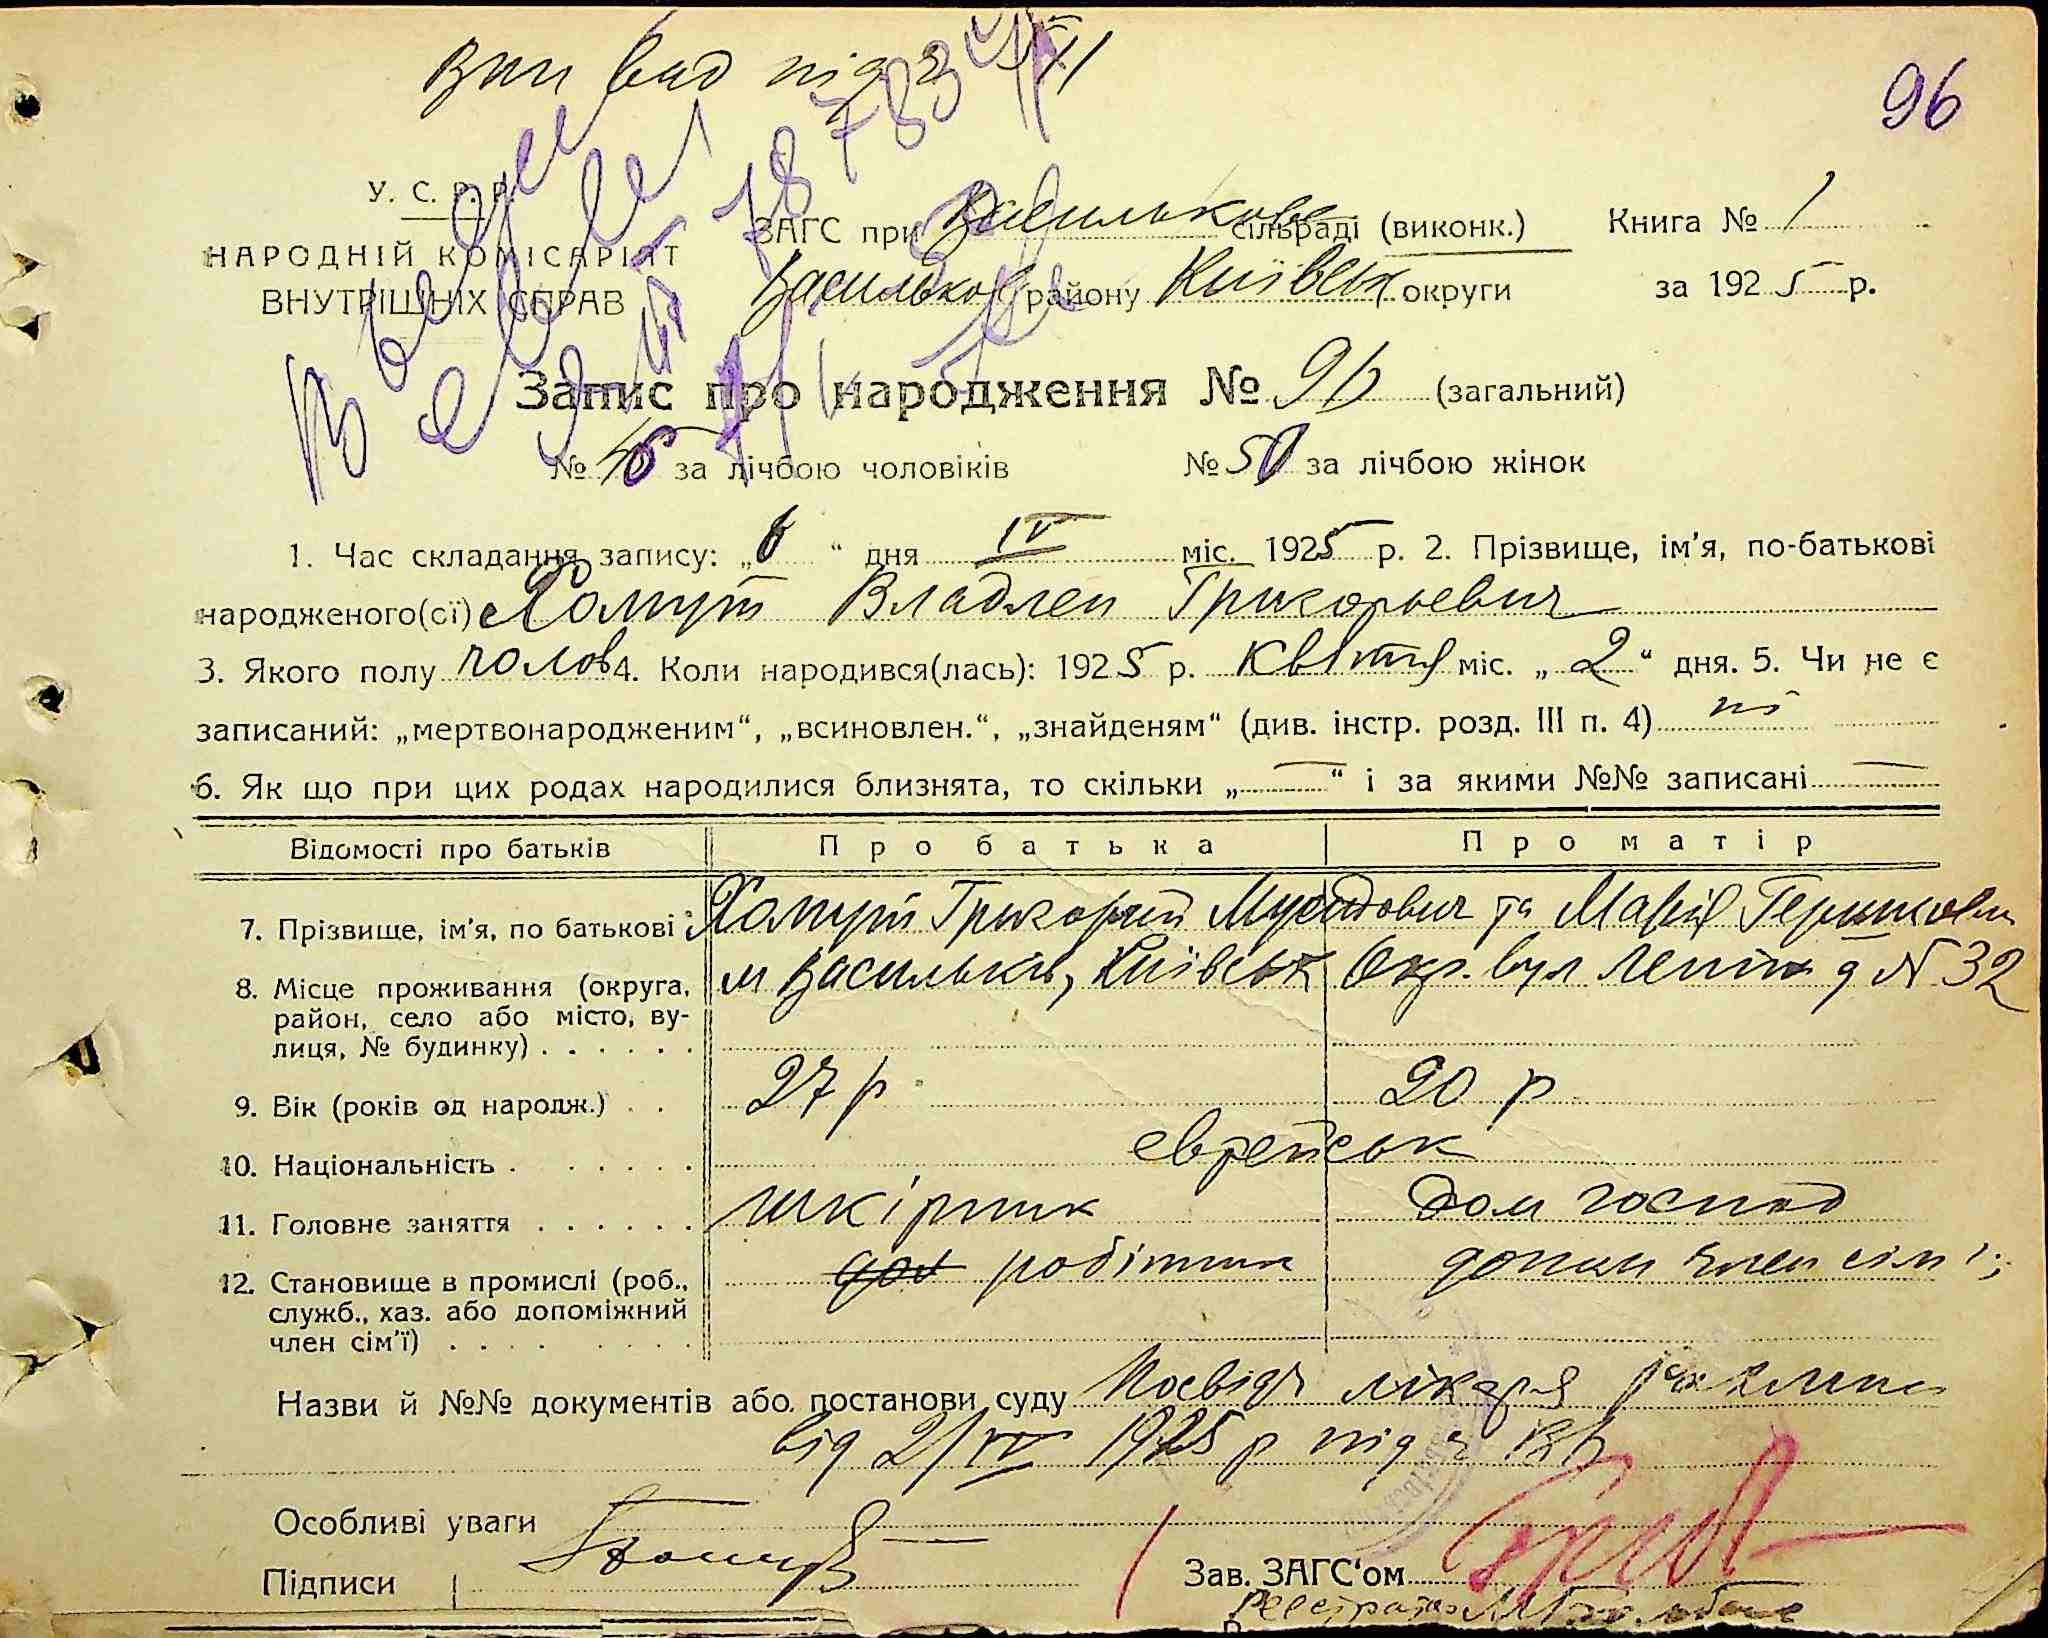 Вип вид під ч
96
У. С. Р. Р.
НАРОДНІЙ КОМІСАРІЯТ
ВНУТРІШНІХ СПРАВ
ЗАГС при Васильков сільраді (виконк.) Книга № 1
Васильков району Київськ округи за 1925 р.
Запис про народження № 96 (загальний)
№ 46 за лічбою чоловіків № 50 за лічбою жінок
1. Час складання запису: „6“ дня IV міс. 1925 р. 2. Прізвище, ім’я, по-батькові
народженого(сї) Хомут Владлен Григорьевич
3. Якого полу чолов 4. Коли народився(лась): 1925 р. Квітня міс. „2“ дня. 5. Чи не є
записаний: „мертвонародженим“, „всиновлен.“, „знайденям“ (див. інстр. розд. III п. 4) ні
6. Як що при цих родах народилися близнята, то скільки „—“ і за якими №№ записані —
Відомості про батьків Про батька Про матір
7. Прізвище, ім’я, по батькові Хомут Григорий та Марія
8. Місце проживання (округа, м Васильків, Київськ Окр. вул Леніна д N 32
район, село або місто, ву-
лиця, № будинку) . . . . . .
9. Вік (років од народж.) . . 27 р 20 р
10. Національність . . . . . . . еврейськ
11. Головне заняття . . . . . . шкірник Дом господ
12. Становище в промислі (роб., робітник допом член сім'ї
служб., хаз. або допоміжний
член сім’ї) . . . . . . .
Назви й №№ документів або постанови суду Посвідч лікаря
від 2/IV 1925 р під ч
Особливі уваги
Підписи
Зав. ЗАГС‘ом
Реєстратор